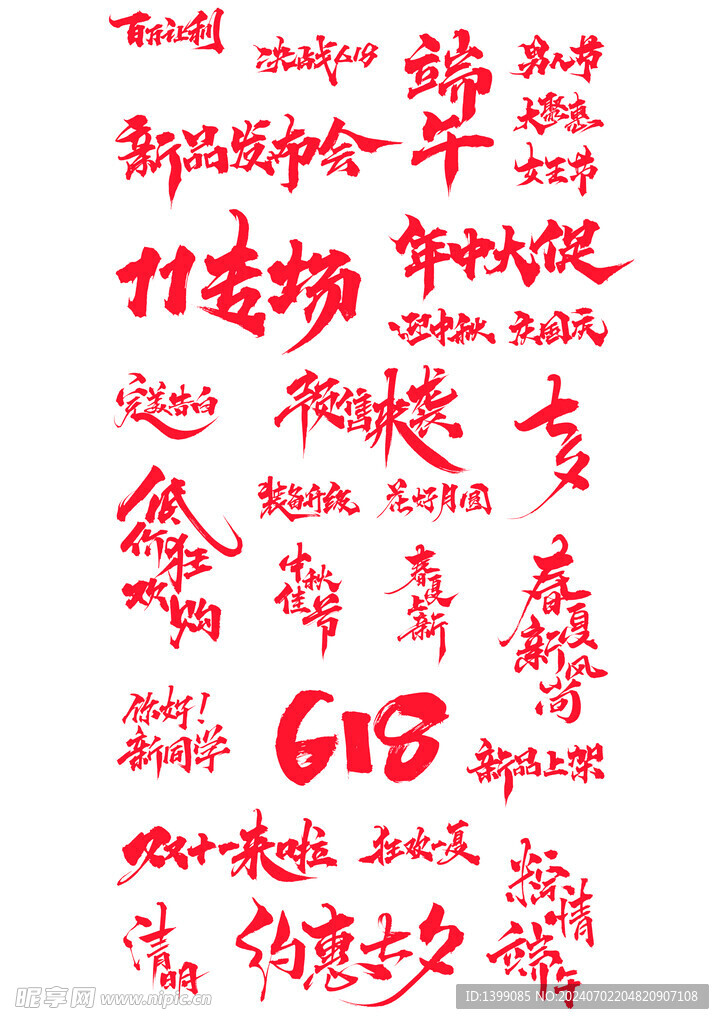 百万让利
决战618
端午
男人节
大聚惠
女王节
新品发布会
11专场
年中大促
迎中秋 庆国庆
完美告白
预售来袭
七夕
低价狂欢购
装备升级
花好月圆
中秋佳节
春夏上新
春夏新风尚
你好!
新同学
618
新品上架
双十一来啦
狂欢一夏
粽情端午
清明
约惠七夕
昵享网 www.nipic.cn
ID:1399085 NO:20240702204820907108